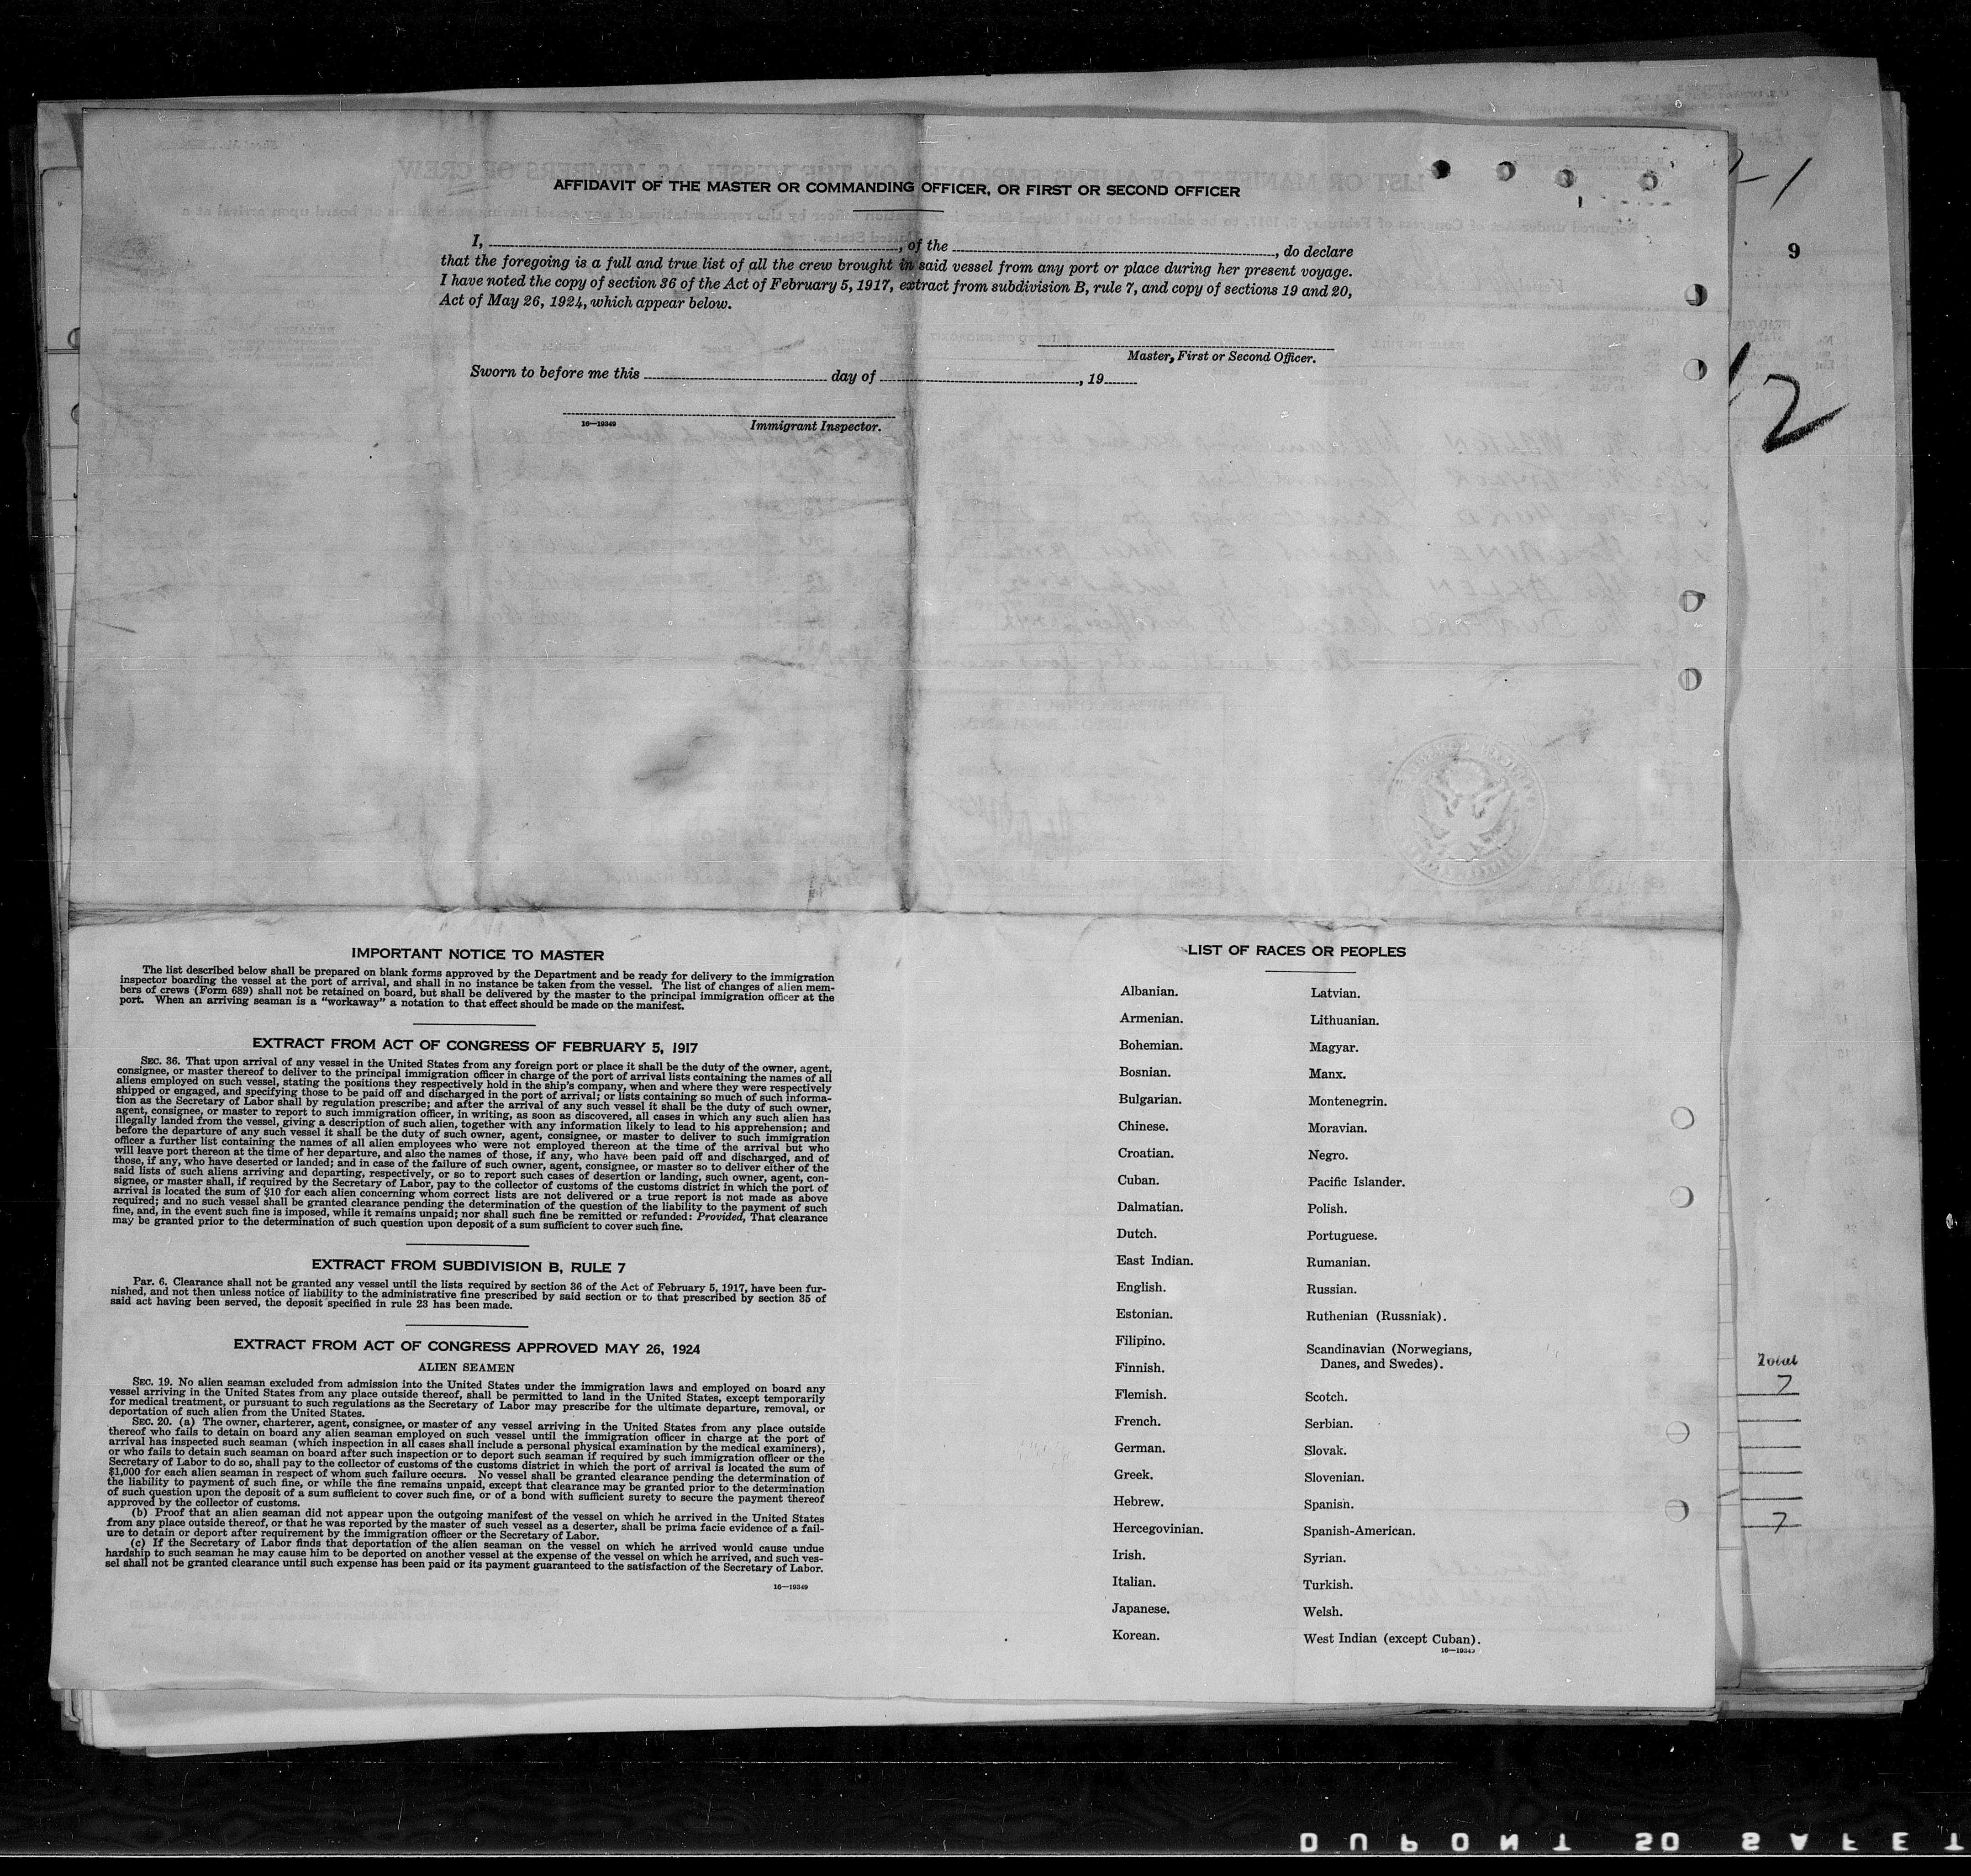 AFFIDAVIT OF THE MASTER OR COMMANDING OFFICER, OR FIRST OR SECOND OFFICER
I, , of the , do declare
that the foregoing is a full and true list of all the crew brought in said vessel from any port or place during her present voyage.
I have noted the copy of section 36 of the Act of February 5, 1917, extract from subdivision B, rule 7, and copy of sections 19 and 20,
Act of May 26, 1924, which appear below.
Master, First or Second Officer.
Sworn to before me this day of , 19
16—19349 Immigrant Inspector.
9
12
IMPORTANT NOTICE TO MASTER
The list described below shall be prepared on blank forms approved by the Department and be ready for delivery to the immigration
inspector boarding the vessel at the port of arrival, and shall in no instance be taken from the vessel. The list of changes of alien mem-
bers of crews (Form 689) shall not be retained on board, but shall be delivered by the master to the principal immigration officer at the
port. When an arriving seaman is a "workaway" a notation to that effect should be made on the manifest.
EXTRACT FROM ACT OF CONGRESS OF FEBRUARY 5, 1917
SEC. 36. That upon arrival of any vessel in the United States from any foreign port or place it shall be the duty of the owner, agent,
consignee, or master thereof to deliver to the principal immigration officer in charge of the port of arrival lists containing the names of all
aliens employed on such vessel, stating the positions they respectively hold in the ship's company, when and where they were respectively
shipped or engaged, and specifying those to be paid off and discharged in the port of arrival; or lists containing so much of such informa-
tion as the Secretary of Labor shall by regulation prescribe; and after the arrival of any such vessel it shall be the duty of such owner,
agent, consignee, or master to report to such immigration officer, in writing, as soon as discovered, all cases in which any such alien has
illegally landed from the vessel, giving a description of such alien, together with any information likely to lead to his apprehension; and
before the departure of any such vessel it shall be the duty of such owner, agent, consignee, or master to deliver to such immigration
officer a further list containing the names of all alien employees who were not employed thereon at the time of the arrival but who
will leave port thereon at the time of her departure, and also the names of those, if any, who have been paid off and discharged, and of
those, if any, who have deserted or landed; and in case of the failure of such owner, agent, consignee, or master so to deliver either of the
said lists of such aliens arriving and departing, respectively, or so to report such cases of desertion or landing, such owner, agent, con-
signee, or master shall, if required by the Secretary of Labor, pay to the collector of customs of the customs district in which the port of
arrival is located the sum of $10 for each alien concerning whom correct lists are not delivered or a true report is not made as above
required; and no such vessel shall be granted clearance pending the determination of the question of the liability to the payment of such
fine, and, in the event such fine is imposed, while it remains unpaid; nor shall such fine be remitted or refunded: Provided, That clearance
may be granted prior to the determination of such question upon deposit of a sum sufficient to cover such fine.
EXTRACT FROM SUBDIVISION B, RULE 7
Par. 6. Clearance shall not be granted any vessel until the lists required by section 36 of the Act of February 5, 1917, have been fur-
nished, and not then unless notice of liability to the administrative fine prescribed by said section or to that prescribed by section 35 of
said act having been served, the deposit specified in rule 23 has been made.
EXTRACT FROM ACT OF CONGRESS APPROVED MAY 26, 1924
ALIEN SEAMEN
SEC. 19. No alien seaman excluded from admission into the United States under the immigration laws and employed on board any
vessel arriving in the United States from any place outside thereof, shall be permitted to land in the United States, except temporarily
for medical treatment, or pursuant to such regulations as the Secretary of Labor may prescribe for the ultimate departure, removal, or
deportation of such alien from the United States.
SEC. 20. (a) The owner, charterer, agent, consignee, or master of any vessel arriving in the United States from any place outside
thereof who fails to detain on board any alien seaman employed on such vessel until the immigration officer in charge at the port of
arrival has inspected such seaman (which inspection in all cases shall include a personal physical examination by the medical examiners),
or who fails to detain such seaman on board after such inspection or to deport such seaman if required by such immigration officer or the
Secretary of Labor to do so, shall pay to the collector of customs of the customs district in which the port of arrival is located the sum of
$1,000 for each alien seaman in respect of whom such failure occurs. No vessel shall be granted clearance pending the determination of
the liability to payment of such fine, or while the fine remains unpaid, except that clearance may be granted prior to the determination
of such question upon the deposit of a sum sufficient to cover such fine, or of a bond with sufficient surety to secure the payment thereof
approved by the collector of customs.
(b) Proof that an alien seaman did not appear upon the outgoing manifest of the vessel on which he arrived in the United States
from any place outside thereof, or that he was reported by the master of such vessel as a deserter, shall be prima facie evidence of a fail-
ure to detain or deport after requirement by the immigration officer or the Secretary of Labor.
(c) If the Secretary of Labor finds that deportation of the alien seaman on the vessel on which he arrived would cause undue
hardship to such seaman he may cause him to be deported on another vessel at the expense of the vessel on which he arrived, and such ves-
sel shall not be granted clearance until such expense has been paid or its payment guaranteed to the satisfaction of the Secretary of Labor.
16—19349
LIST OF RACES OR PEOPLES
Albanian.
Armenian.
Bohemian.
Bosnian.
Bulgarian.
Chinese.
Croatian.
Cuban.
Dalmatian.
Dutch.
East Indian.
English.
Estonian.
Filipino.
Finnish.
Flemish.
French.
German.
Greek.
Hebrew.
Hercegovinian.
Irish.
Italian.
Japanese.
Korean.
Latvian.
Lithuanian.
Magyar.
Manx.
Montenegrin.
Moravian.
Negro.
Pacific Islander.
Polish.
Portuguese.
Rumanian.
Russian.
Ruthenian (Russniak).
Scandinavian (Norwegians,
Danes, and Swedes).
Scotch.
Serbian.
Slovak.
Slovenian.
Spanish.
Spanish-American.
Syrian.
Turkish.
Welsh.
West Indian (except Cuban).
16—19349
Total
7
7
DUPONT SAFET